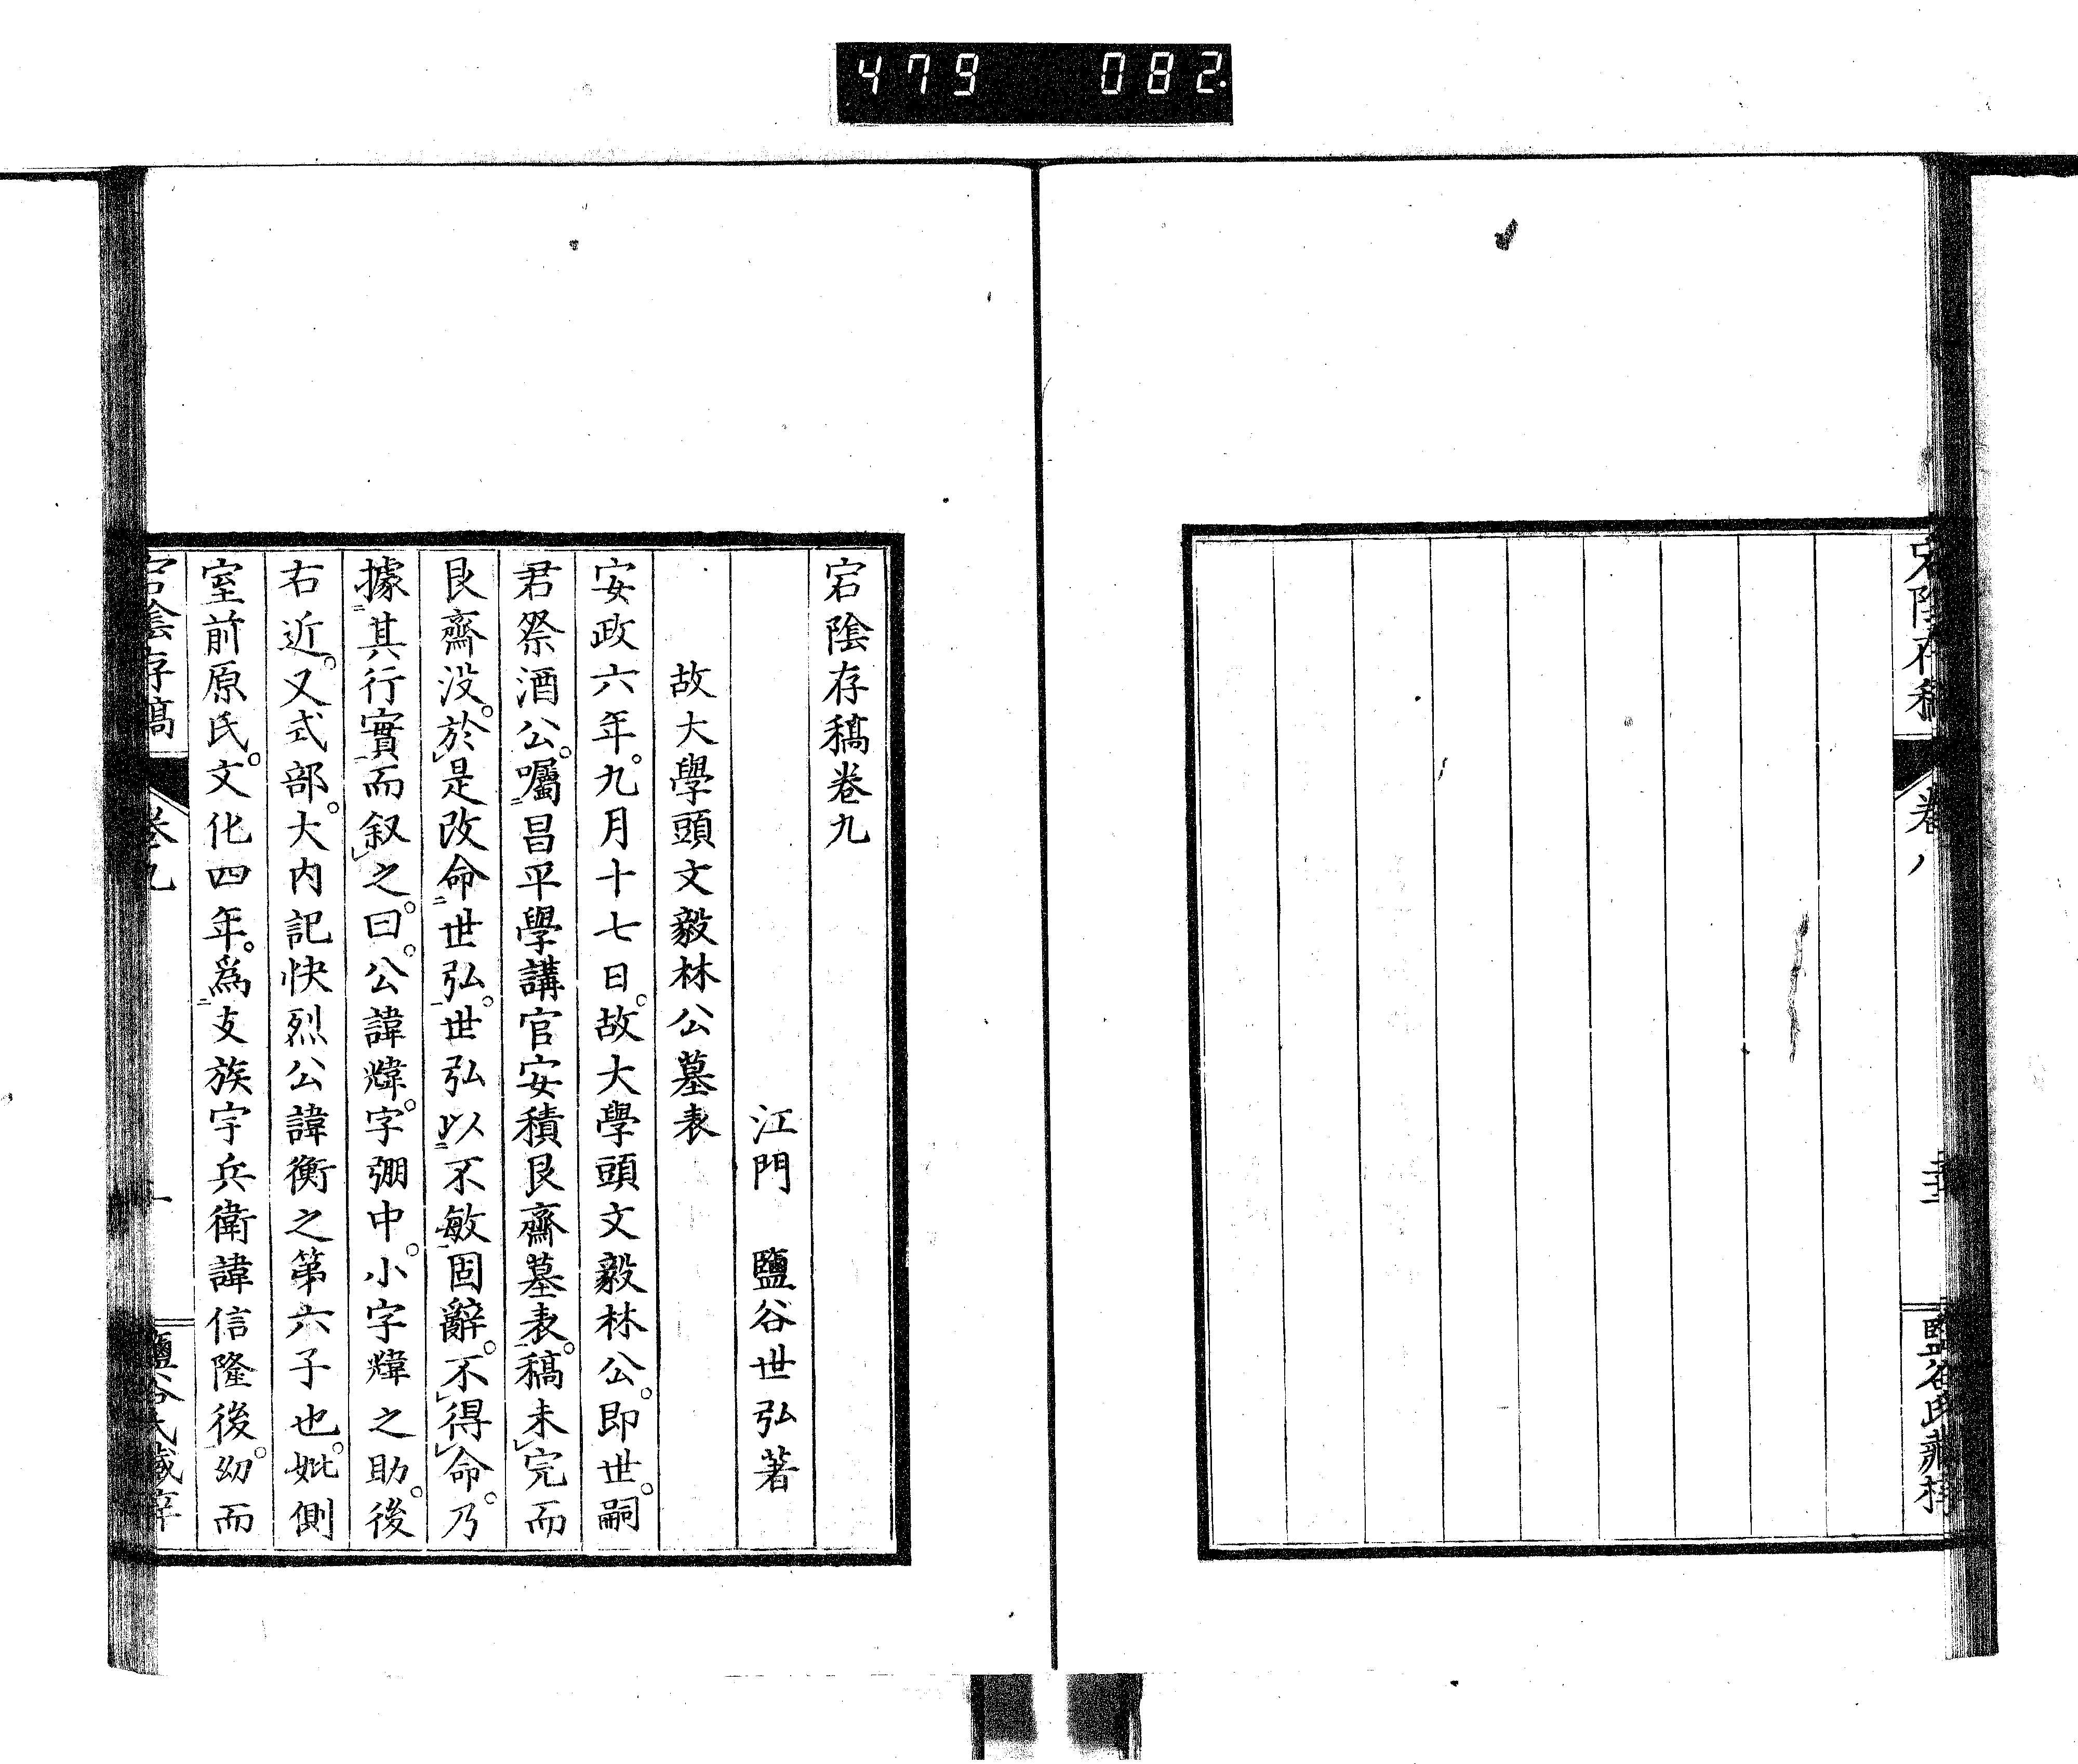 479 082
宕陰存稿 卷八 鹽谷氏藏梓
宕陰存稿卷九
江門 鹽谷世弘著
故大學頭文毅林公墓表
安政六年。九月十七日。故大學頭文毅林公。即世。嗣
君祭酒公。囑昌平學講官安積艮齋墓表。稿未完而
艮齋没。於是改命世弘。世弘以不敏固辭。不得命。乃
據其行實而叙之曰。公諱煒字。弸中。小字煒之助。後
右近。又式部。大内記快烈公諱衡之第六子也。妣側
室前原氏。文化四年。爲支族宇兵衛諱信隆後。幼而
宕陰存稿 卷九 一 鹽谷氏藏梓